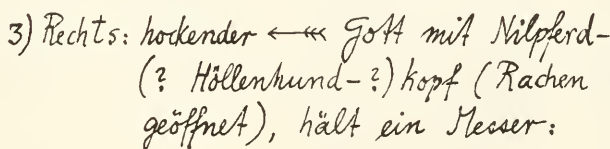 3) Rechts: hockender ←«« Gott mit Nilpferd-
(? Höllenhund-?) kopf (Rachen
geöffnet), hält ein Messer: